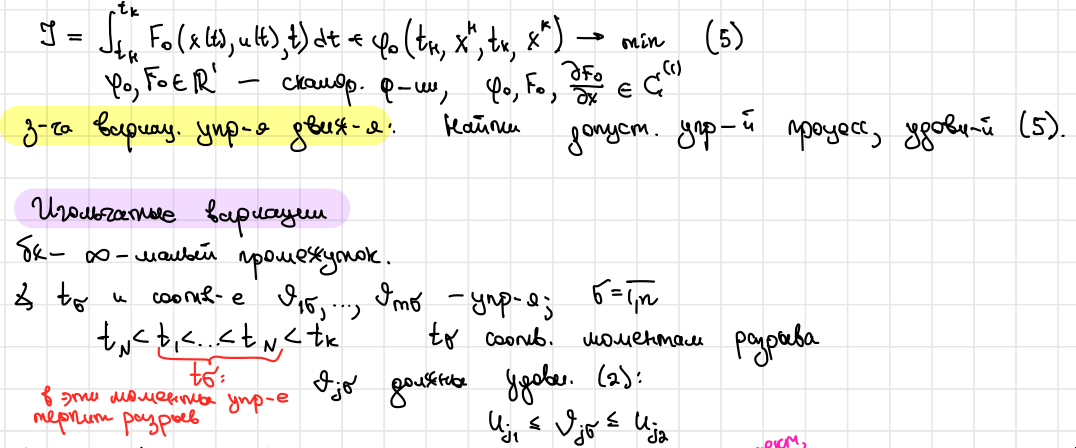 J = ∫_{t_н}^{t_к} F₀(x(t), u(t), t) dt + φ₀(t_н, x^н, t_к, x^к) → min (5)
φ₀, F₀ ∈ ℝ¹ — скаляр. ф-ии, φ₀, F₀, ∂F₀/∂x ∈ C^{(1)}
З-ча вариац. упр-я движ-я: Найти допуст. упр-й процесс, удовл-й (5).
Игольчатые вариации
δ_к – ∞-малый промежуток.
t_σ и соотв-е ϑ_{1σ}, ..., ϑ_{mσ} – упр-я; σ = \overline{1,n}
t_N < t₁ < ... < t_N < t_к t_σ соотв. моментам разрыва
t_σ:
в эти моменты упр-е
терпит разрыв
ϑ_{jσ} должны удовл. (2):
u_{j1} ≤ ϑ_{jσ} ≤ u_{j2}